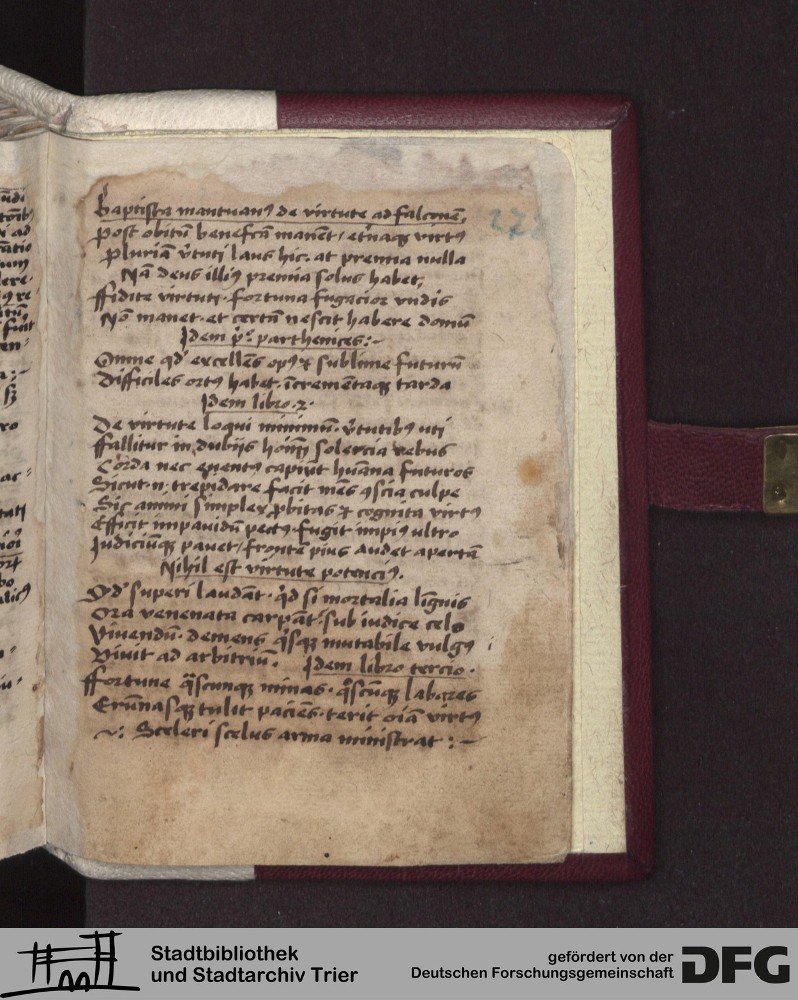 Baptista mantuanꝰ de virtute ad falconē,
post obitū benefcā manēt / et̄naqꝫ virtꝰ
pluriā v̄tuti laus hic. at premia nulla
Nā deus illiꝰ premia solus habet,
ffidite virtuti. fortuna fugacior vndis
Nō manet. et certā nescit habere domū
Idem pͦ. parthenices:~
Omne qd̓ excellēs opꝰ & sublime futurū
Difficiles ortꝰ habet. īcremētaqꝫ tarda
Idem libro .2.
De virtute loqui minimū. v̄tutibꝰ uti
ffallitur in dubijs homī solercia rebus
Corda nec euentꝰ capiūt huāna futuros
Sicut n̄ trepidare facit mēs ꝯscia culpe
Sic animi simplex ꝓbitas & cognita virtꝰ
Efficit impavidū pectꝰ. fugit impiꝰ ultro
Judiciūqꝫ pauet / fronte pius audet apertā
Nihil est virtute potenciꝰ.
Qd̓ superi laudāt. qͥd si mortalia lignis
Ora venenata carpāt. sub iudice celo
Viuendū. demens qͥsqꝫ mutabile vulgꝰ
Viuit ad arbitriū. Idem libro tercio.
ffortune qͣscunqꝫ minas. qͦscūqꝫ labores
Erūnasqꝫ tulit paciēs. terit oīa virtꝰ
~: Sceleri scelus arma ministrat :~
Stadtbibliothek
und Stadtarchiv Trier
gefördert von der
Deutschen Forschungsgemeinschaft
DFG